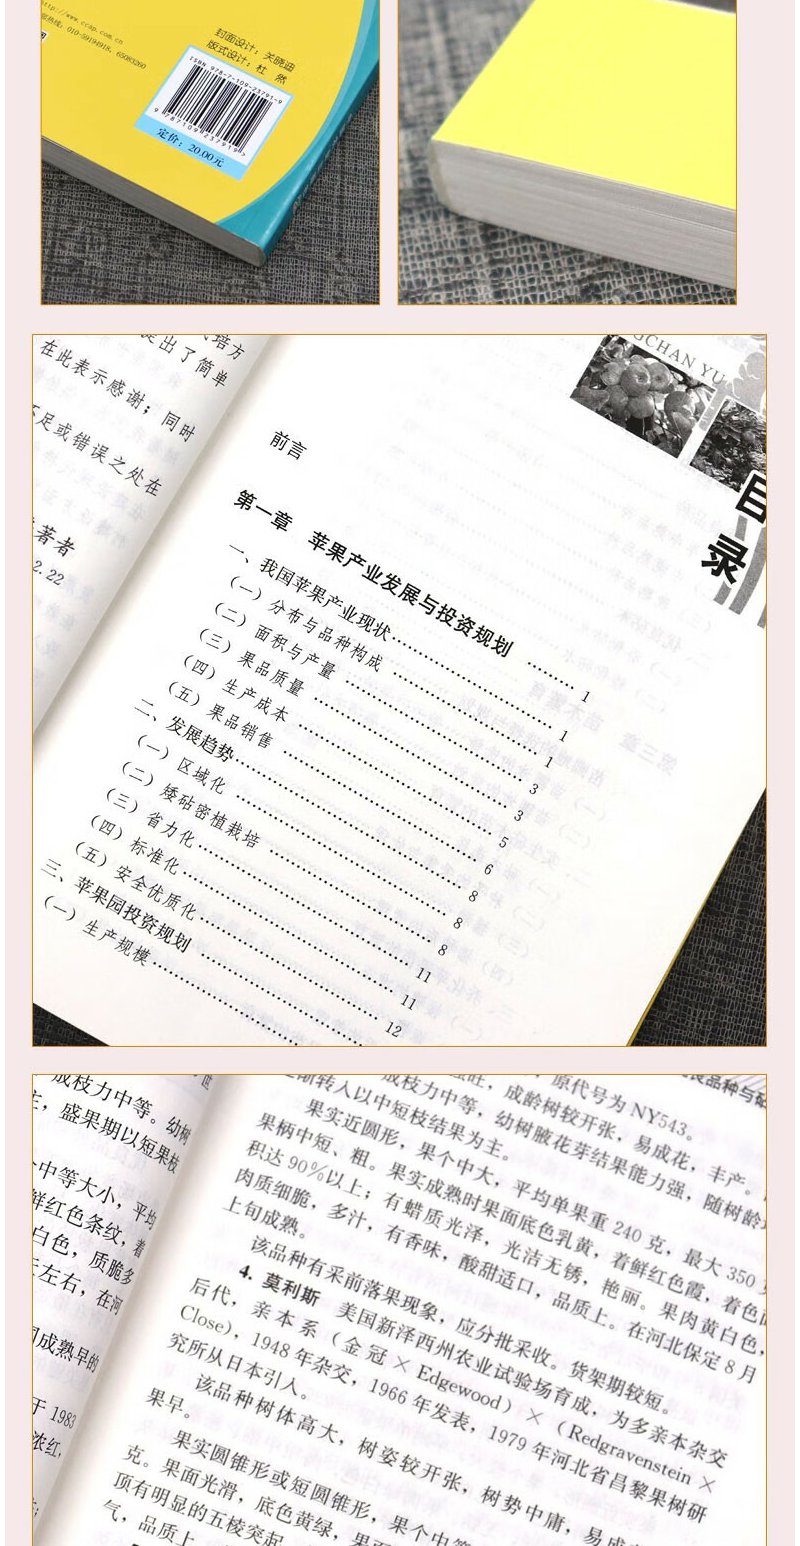 http://www.ccap.com.cn
010-59194918, 65083260
封面设计：关晓迪
版式设计：杜 然
ISBN 978-7-109-23791-9
9 787109 237919 >
定价：20.00元
培方
提出了简单
在此表示感谢；同时
不足或错误之处在
著者
2.22
GCHAN YU
目
录
前言
第一章 苹果产业发展与投资规划 ……… 1
一、我国苹果产业现状 ……… 1
（一）分布与品种构成 ……… 1
（二）面积与产量 ……… 3
（三）果品质量 ……… 3
（四）生产成本 ……… 5
（五）果品销售 ……… 6
二、发展趋势 ……… 8
（一）区域化 ……… 8
（二）矮砧密植栽培 ……… 8
（三）省力化 ……… 11
（四）标准化 ……… 11
（五）安全优质化 ……… 12
三、苹果园投资规划
（一）生产规模
成枝力中等。幼树
盛果期以短果枝
中等大小，平均
鲜红色条纹，着
白色，质脆多
左右，在河
成熟早的
于 1983
浓红，
良品种与砧
原代号为 NY543。
旺，成龄树较开张，易成花，丰产。
成枝力中等，幼树腋花芽结果能力强，随树龄
渐转入以中短枝结果为主。
果实近圆形，果个中大，平均单果重 240 克，最大 350 克
果柄中短、粗。果实成熟时果面底色乳黄，着鲜红色霞，着色面
积达 90％以上；有蜡质光泽，光洁无锈，艳丽。果肉黄白色，
肉质细脆，多汁，有香味，酸甜适口，品质上。在河北保定 8 月
上旬成熟。
该品种有采前落果现象，应分批采收。货架期较短。
4. 莫利斯 美国新泽西州农业试验场育成，为多亲本杂交
后代，亲本系（金冠 × Edgewood）×（Redgravenstein ×
Close），1948 年杂交，1966 年发表，1979 年河北省昌黎果树研
究所从日本引人。
该品种树体高大，树姿较开张，树势中庸，易成
果早。
果实圆锥形或短圆锥形，果个中等
克。果面光滑，底色黄绿，果面
顶有明显的五棱突起
气，品质上